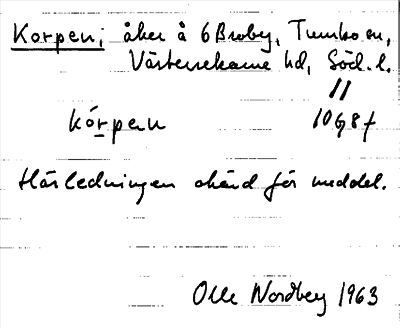 Korpen; åker å 6 Broby, Tumbo sn,
Västerrekarne hd, Söd. l.
//
kórpen 10G8f
Härledningen okänd för meddel.
Olle Nordberg 1963